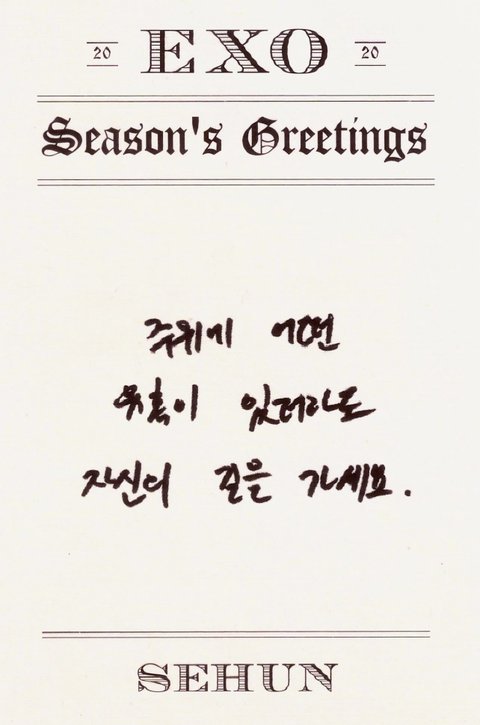 20 EXO 20
Season's Greetings
주위에 어떤
유혹이 있더라도
자신의 길을 가세요.
SEHUN